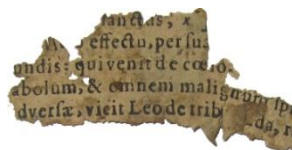 sanctus, x
effectu, per su
undis: qui venit de cœlo
abolum, & omnem malignum sp
dversæ, vicit Leo de trib da, r